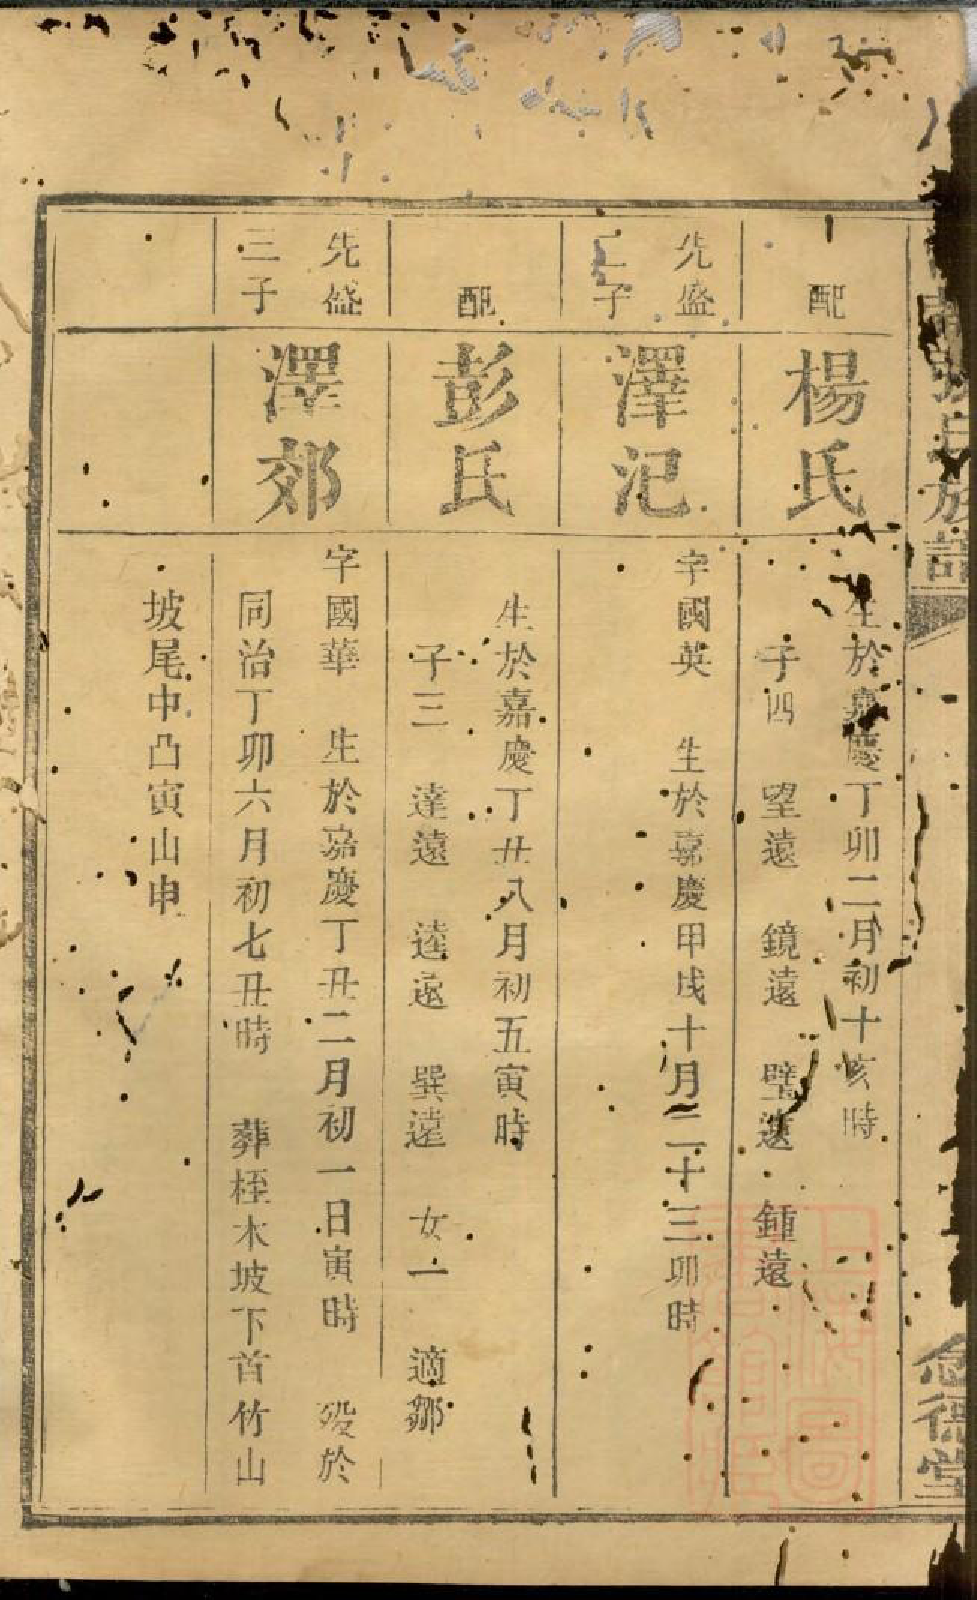 氏族譜
念德堂
配
楊氏
生於嘉慶丁卯二月初十亥時
子四 望遠 鏡遠 璧遠 鍾遠
先盛
二子
澤汜
字國英 生於嘉慶甲戌十月二十三卯時
配
彭氏
生於嘉慶丁丑八月初五寅時
子三 達遠 逵遠 巽遠 女一 適鄒
先盛
三子
澤郊
字國華 生於嘉慶丁丑二月初一日寅時 歿於
同治丁卯六月初七丑時 葬桎木坡下首竹山
坡尾中凸寅山申